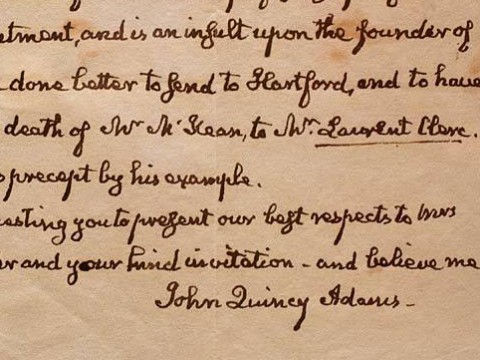 tment, and is an insult upon the founder of
done better to send to Hartford, and to have
death of Mr McKean, to Mr. Laurent Clerc.
s precept by his example.
esting you to present our best respects to Mrs
er and your kind invitation - and believe me
John Quincy Adams -